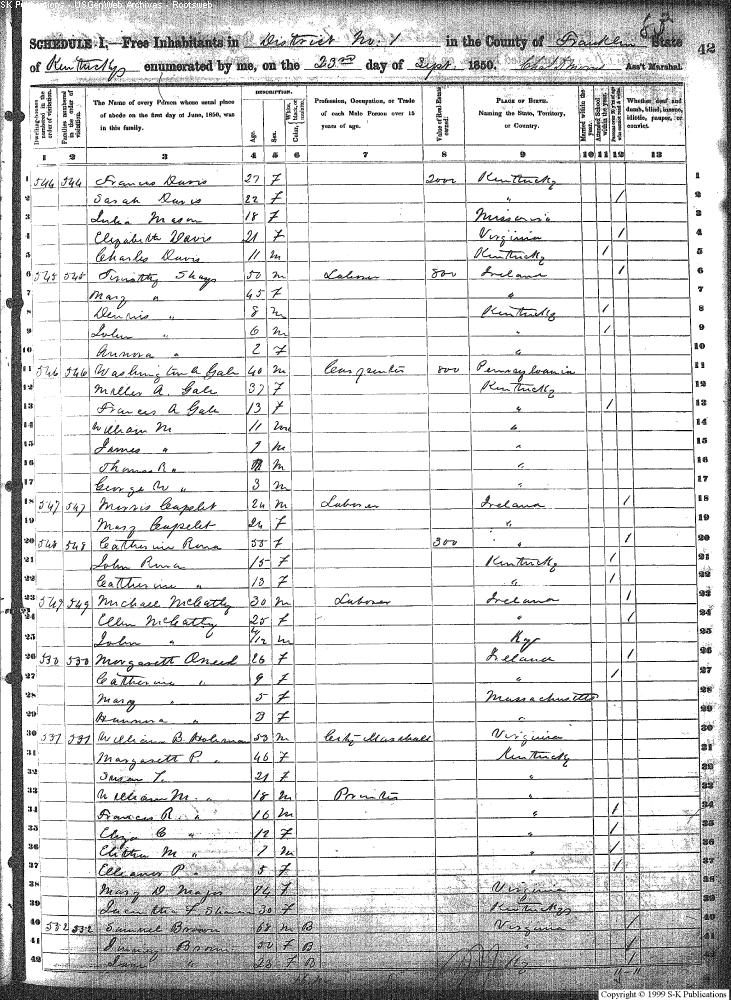 SK Publications - USGenWeb Archives - Rootsweb
SCHEDULE I.—Free Inhabitants in District No. 1 in the County of Franklin State 42
of Kentucky enumerated by me, on the 23rd day of Sept. 1850. Ass't Marshal.
Dwelling-houses numbered in the order of visitation.
Families numbered in the order of visitation.
The Name of every Person whose usual place of abode on the first day of June, 1850, was in this family.
DESCRIPTION.
Age.
Sex.
White, black, or mulatto.
Color,
Profession, Occupation, or Trade of each Male Person over 15 years of age.
Value of Real Estate owned.
PLACE OF BIRTH.
Naming the State, Territory, or Country.
Married within the year.
Attended School within the year.
Persons over 20 y'rs of age who cannot read & write.
Whether deaf and dumb, blind, insane, idiotic, pauper, or convict.
1 2 3 4 5 6 7 8 9 10 11 12 13
1 544 544 Francis Davis 27 F 2000 Kentucky 1
2 Sarah Davis 22 F " / 2
3 Julia Mason 18 F 3
4 Elizabeth Davis 21 F Virginia / 4
5 Charles Davis 11 M Kentucky / 5
6 545 545 Timothy Shays 50 M Laborer 800 Ireland / 6
7 Mary " 45 F " 7
8 Dennis " 8 M Kentucky / 8
9 John " 6 M " / 9
10 " 2 F " 10
11 546 546 Washington A Gale 40 M Carpenter 800 Pennsylvania 11
12 A. Gale 37 F Kentucky 12
13 Frances A Gale 13 F " / 13
14 William M 11 M " 14
15 James " 7 M " 15
16 Thomas B " M " 16
17 George W " 3 M " 17
18 547 547 Morris 24 M Laborer Ireland / 18
19 Mary 24 F " 19
20 548 548 Catherine 55 F 300 " / 20
21 John 15 F Kentucky / 21
22 Catherine " 13 F " / 22
23 549 549 Michael McCatty 30 M Laborer Ireland / 23
24 Ellen McCatty 25 F " / 24
25 John " /12 M Ky 25
26 530 530 Margarett Oneil 26 F Ireland / 26
27 Catherine " 9 F " / 27
28 Mary " 5 F Massachusetts 28
29 Hannora " 3 F " 29
30 531 531 William B. Holeman 53 M City Marshall Virginia 30
31 Margarett P. " 46 F Kentucky 31
32 Susan T. 21 F " 32
33 William M. " 18 M Printer " 33
34 Francis R. " 16 M " / 34
35 Eliza C " 12 F " / 35
36 M " 7 M " / 36
37 Elleanor P " 5 F " / 37
38 Mary D. Major F Virginia 38
39 F. 30 F Kentucky 39
40 532 532 Samuel Brown 68 M B Virginia / 40
41 Brown 50 F B / 41
42 " 23 F B Ky / 42
Copyright © 1999 S-K Publications